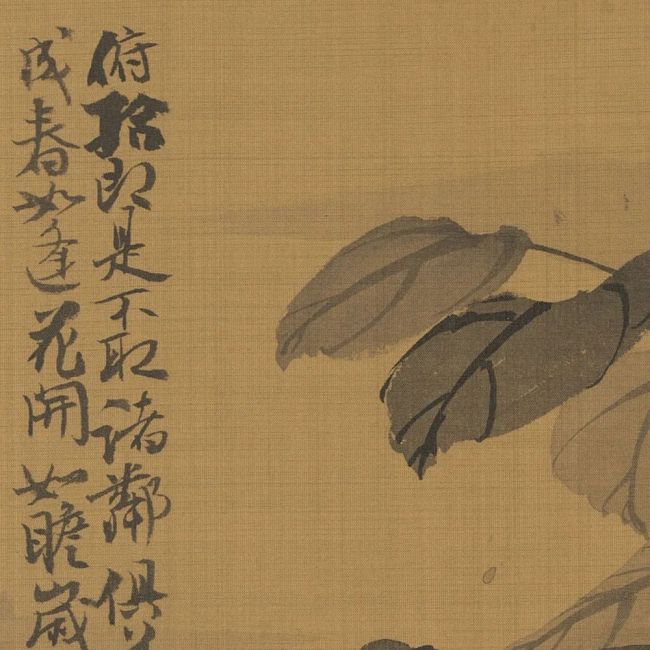 俯拾即是不取諸鄰俱
成春如逢花開如瞻歲